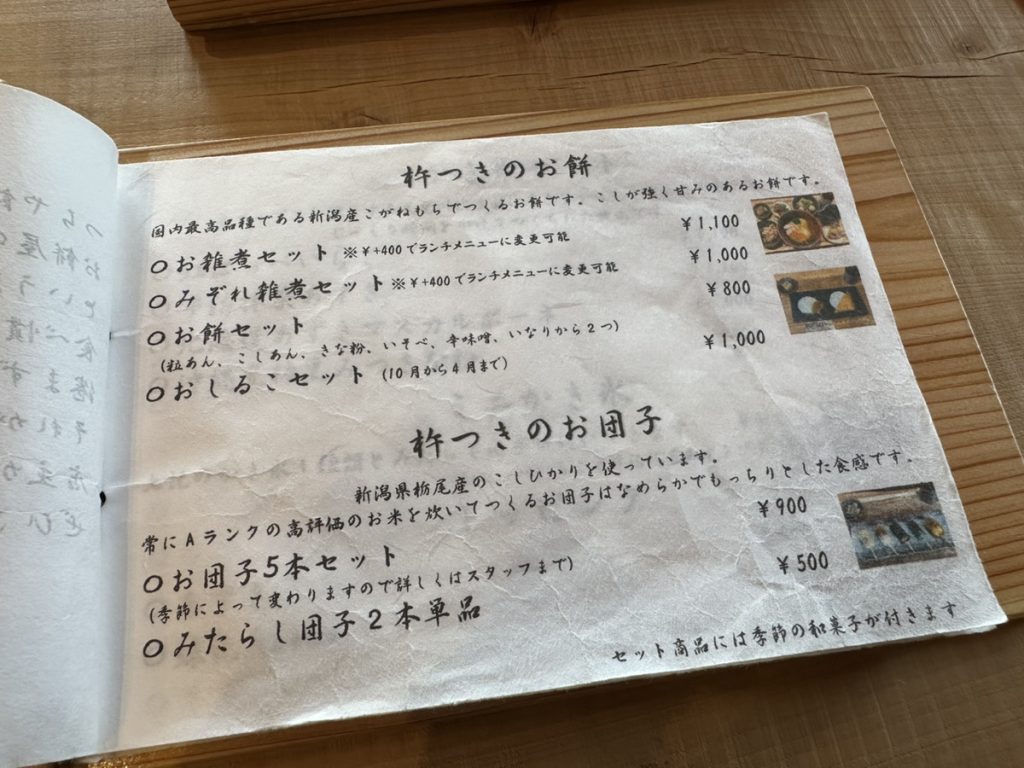 杵つきのお餅
国内最高品種である新潟産こがねもちでつくるお餅です。こしが強く甘みのあるお餅です。
○お雑煮セット ※¥+400でランチメニューに変更可能 ¥1,100
○みぞれ雑煮セット ※¥+400でランチメニューに変更可能 ¥1,000
○お餅セット ¥800
(粒あん、こしあん、きな粉、いそべ、辛味噌、いなりから2つ)
○おしるこセット (10月から4月まで) ¥1,000
杵つきのお団子
新潟県栃尾産のこしひかりを使っています。
常にAランクの高評価のお米を炊いてつくるお団子はなめらかでもっちりとした食感です。
○お団子5本セット ¥900
(季節によって変わりますので詳しくはスタッフまで)
○みたらし団子2本単品 ¥500
セット商品には季節の和菓子が付きます